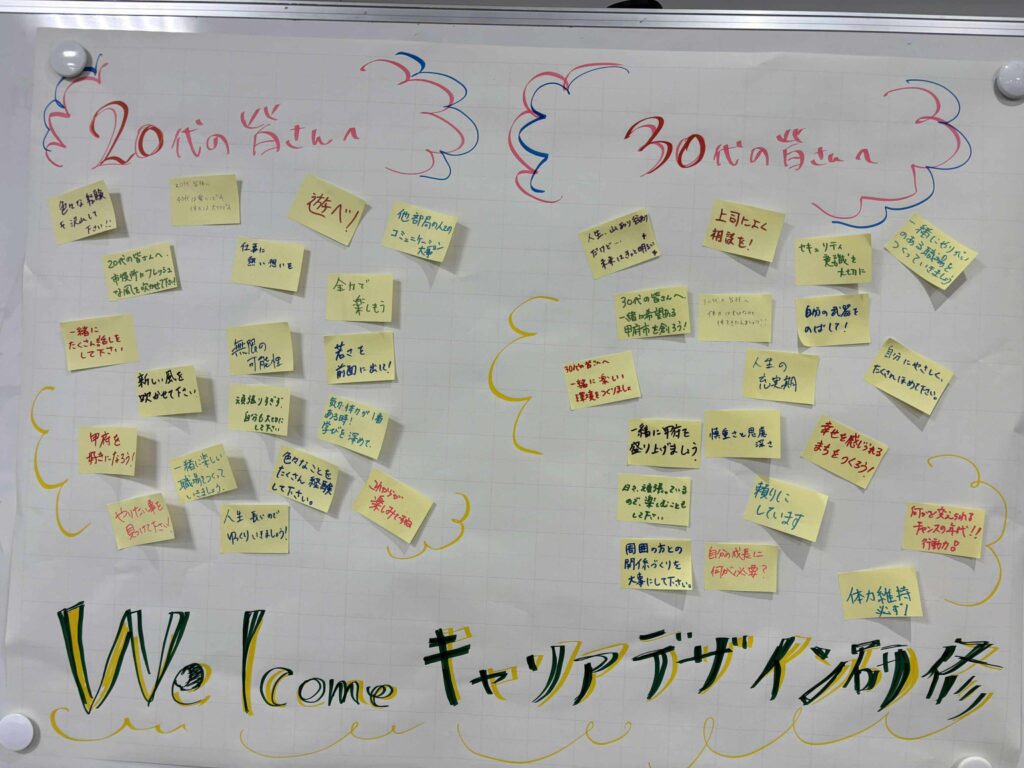 20代の皆さんへ
色々な経験
を沢山して
下さい!!
20代の皆様へ
遊べ!
他部局の人との
コミュニケーション
大事
20代の皆さんへ
市役所にフレッシュ
な風を吹かせて下さい!
仕事に
熱い想いを
全力で
楽しもう
一緒に
たくさん話しを
して下さい
無限の
可能性
若さを
前面に出して!
新しい風を
吹かせて下さい。
頑張りすぎず
自分も大切に
して下さい
気力体力が1番
ある時!
学びを深めて
甲府を
好きになろう!
一緒に楽しい
職場をつくって
いきましょう。
色々なことを
たくさん経験
して下さい。
これからが
楽しみですね
やりたい事を
見つけて下さい!
人生長いので
ゆっくりいきましょう!
30代の皆さんへ
人生、山あり谷あり
だけど…
未来はきっと明るい
上司によく
相談を!
セキュリティ
意識を
大切に
一緒にやりがい
のある職場を
つくっていきましょう
30代の皆さんへ
一緒に希望ある
甲府市を創ろう!
30代の皆様へ
自分の武器を
のばして!
30代の皆へ
一緒に楽しい
環境をつくりましょ
人生の
充実期
自分にやさしく、
たくさんほめて下さい。
一緒に甲府を
盛り上げましょう!
慎重さと思慮
深さ
幸せを感じられる
まちをつくろう!
日々、頑張っている
ので、楽しむことも
して下さい
頼りに
しています
何にでも変われる
チャンスの年代!!
行動力。
周囲の方との
関係づくりを
大事にして下さい。
自分の成長に
何が必要?
体力維持
必ず!
Welcome キャリアデザイン研修